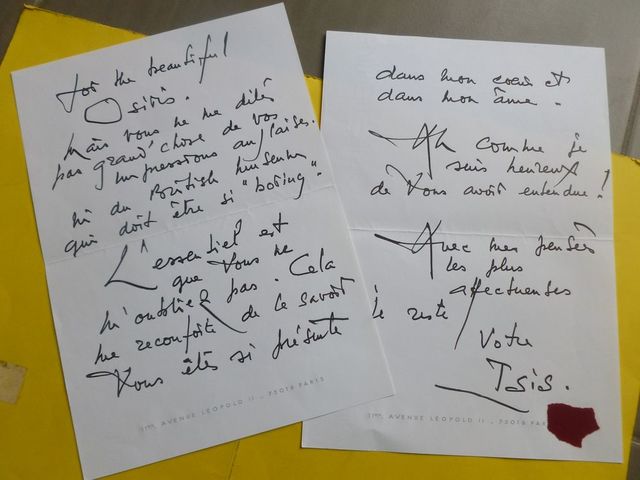 For the beautiful
Osiris.
Mais vous ne me dites
pas grand'chose de vos
impressions anglaises.
ni du British Museum
qui doit être si "boring".
L'essentiel est
que vous ne
m'oubliez pas. Cela
me reconforte de le savoir
Vous êtes si présente
AVENUE LÉOPOLD II - 75016 PARIS
dans mon coeur et
dans mon âme.
Ah comme je
suis heureux
de Vous avoir entendue!
Avec mes pensées
les plus
affectueuses
je reste
Votre
Isis.
AVENUE LÉOPOLD II - 75016 PARIS